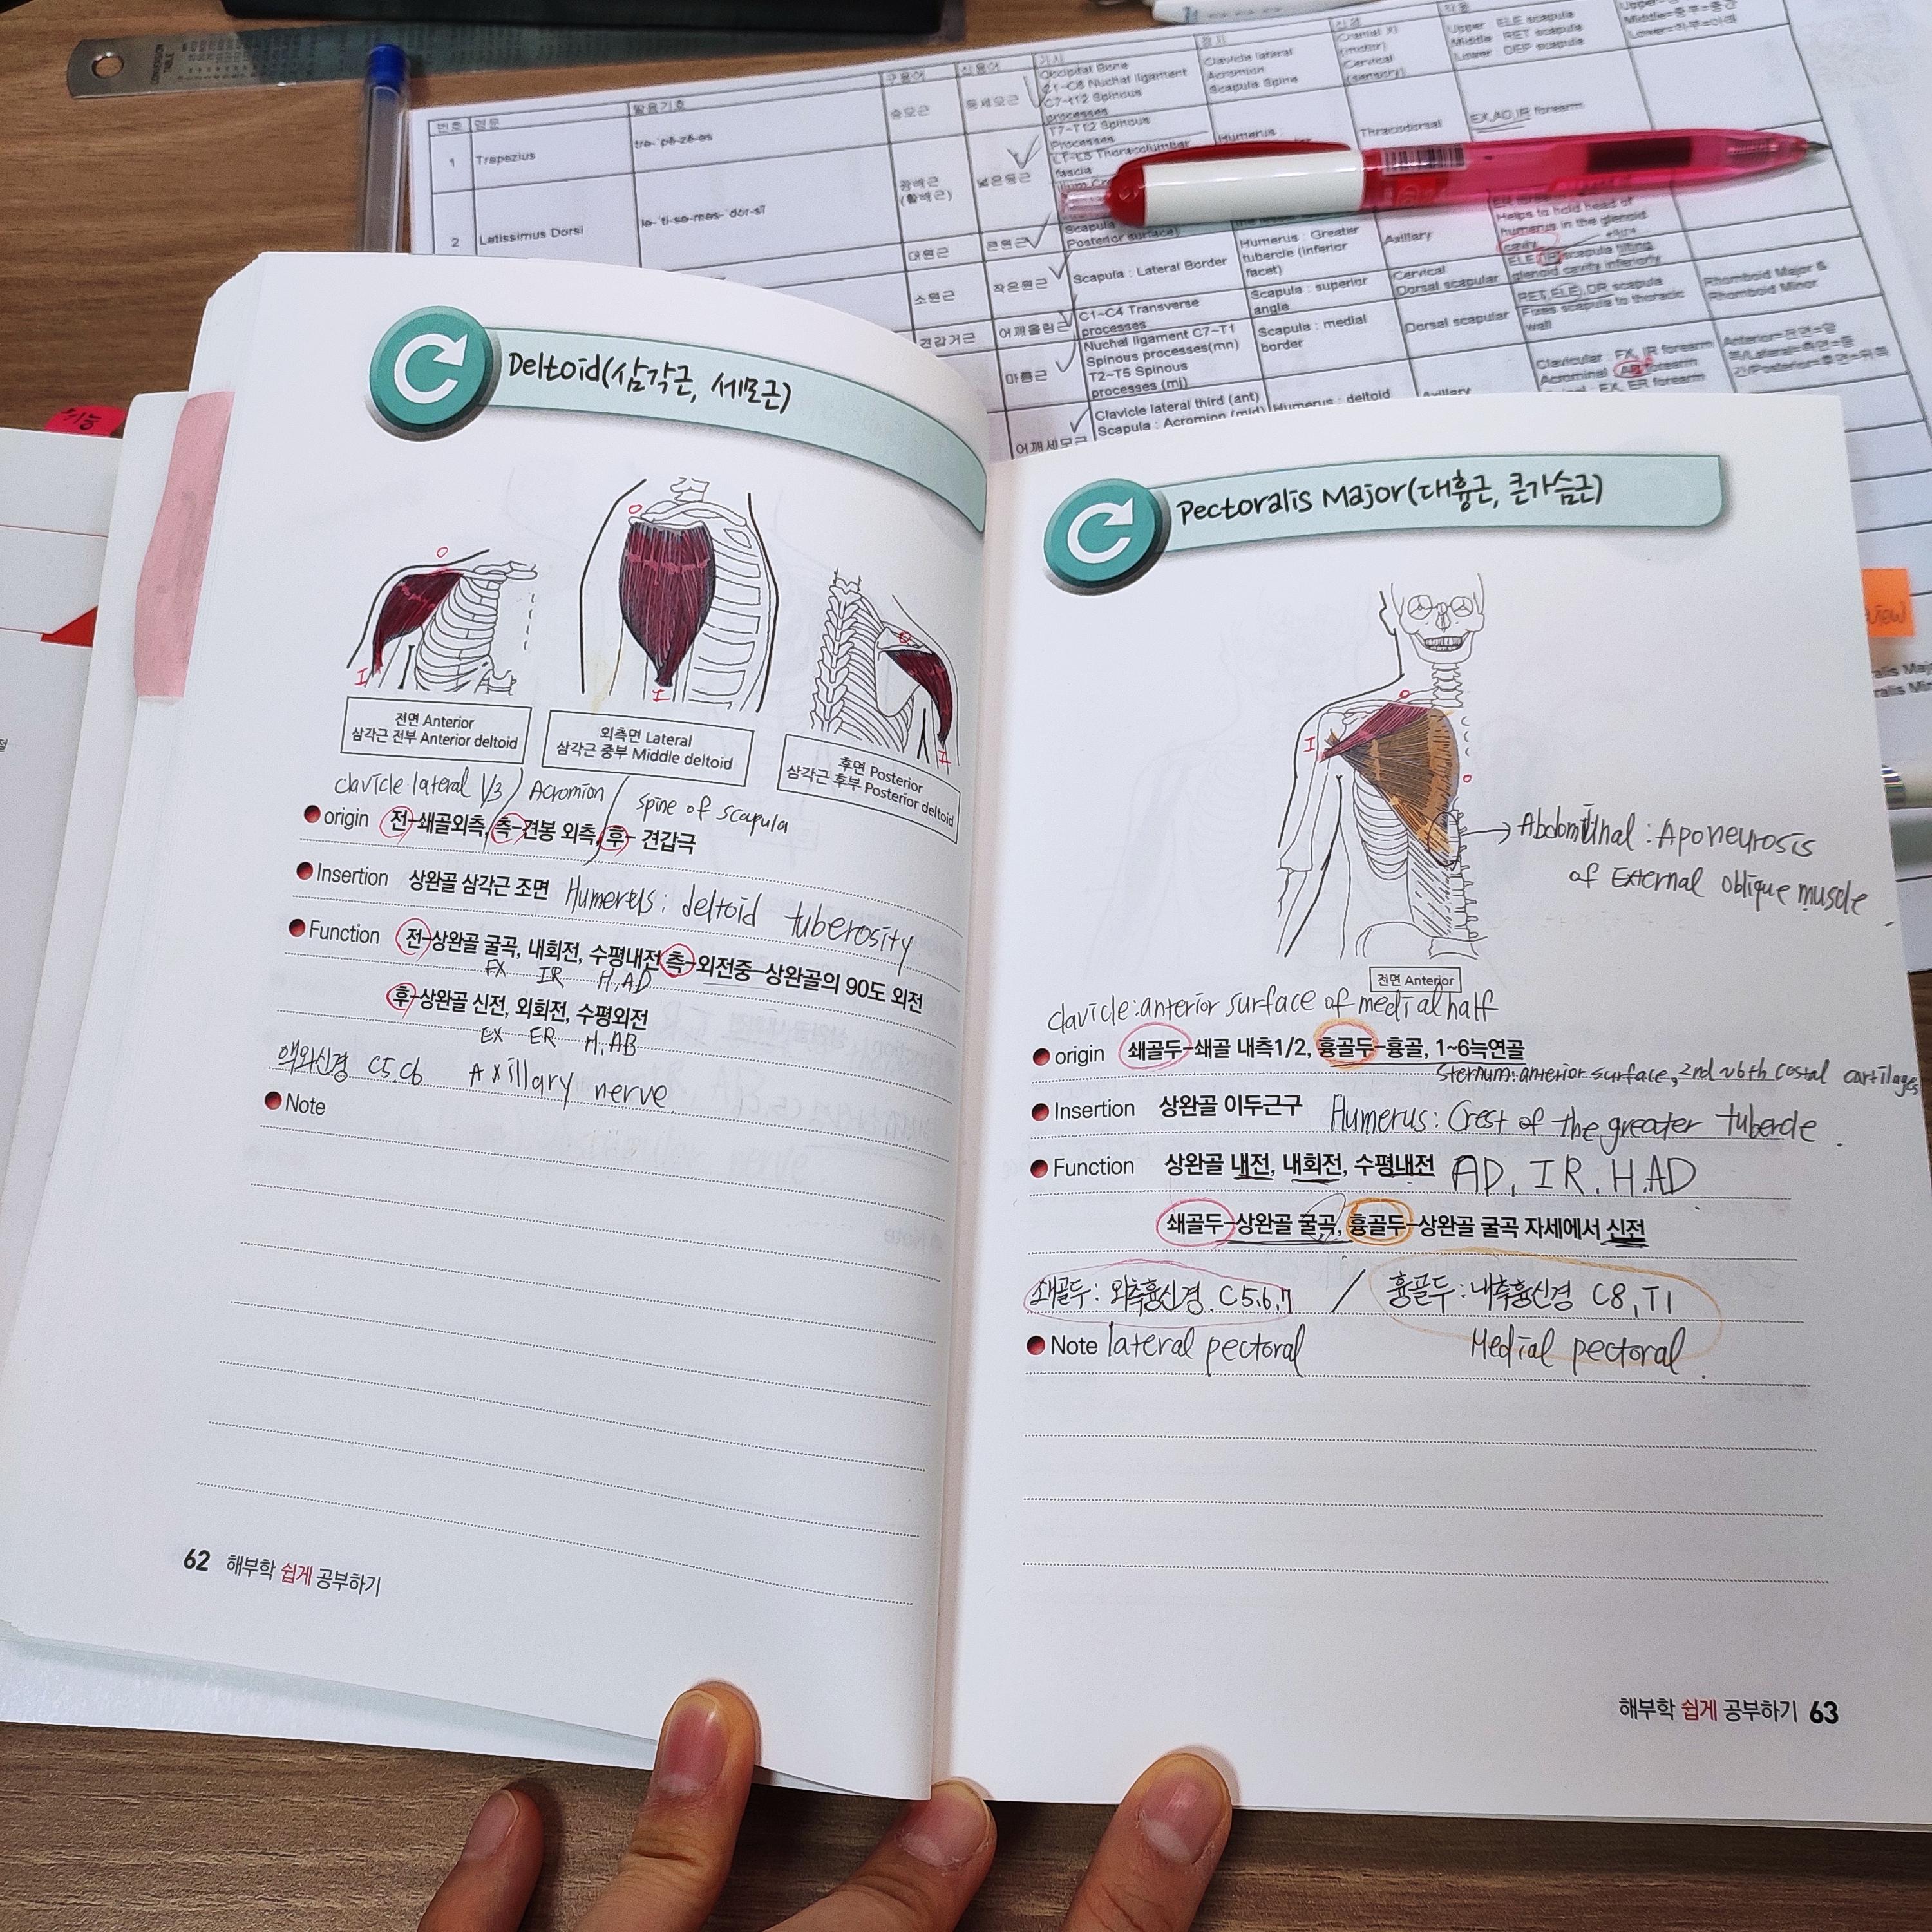 CONVERSION TABLE
번호
영문
발음기호
구용어
기시
1
Trapezius
승모근
등세모근
Occipital Bone
C1-C6 Nuchal ligament
C7-t12 Spinous
processes
Clavicle lateral
Acromion
Scapula Spine
Cervical
(sensory)
Upper : ELE scapula
Middle : RET scapula
Lower : DEP scapula
Middle=중부=중간
Lower=하부=아래
2
Latissimus Dorsi
광배근
(활배근)
넓은등근
T7-T12 Spinous
Processes
fascia
Humerus :
EX,AD,IR forearm
대원근
큰원근
Scapula
Posterior surface)
소원근
작은원근
Scapula : Lateral Border
Humerus : Greater
tubercle (inferior
facet)
Axillary
Helps to hold head of
humerus in the glenoid
cavity
견갑거근
어깨올림근
C1-C4 Transverse
processes
Scapula : superior
angle
Cervical
Dorsal scapular
glenoid cavity inferiorly
마름근
Nuchal ligament C7-T1
Spinous processes(mn)
T2-T5 Spinous
processes (mj)
Scapula : medial
border
Dorsal scapular
RET,ELE,DR scapula
Fixes scapula to thoracic
wall
Rhomboid Major &
Rhomboid Minor
어깨세모근
Clavicle lateral third (ant)
Scapula : Acromion (mid)
Humerus : deltoid
Axillary
Clavicular : FX, IR forearm
Acrominal : AB forearm
EX, ER forearm
Anterior=전면=앞
쪽/Lateral=측면=중
간/Posterior=후면=뒤쪽
기능
Deltoid(삼각근, 세모근)
O
I
O
I
O
I
전면 Anterior
삼각근 전부 Anterior deltoid
외측면 Lateral
삼각근 중부 Middle deltoid
후면 Posterior
삼각근 후부 Posterior deltoid
clavicle lateral 1/3 / Acromion / spine of scapula
origin 전-쇄골외측, 측-견봉 외측, 후- 견갑극
Insertion 상완골 삼각근 조면 Humerus : deltoid tuberosity
Function 전-상완골 굴곡, 내회전, 수평내전 측-외전중-상완골의 90도 외전
FX IR H.AD
후-상완골 신전, 외회전, 수평외전
EX ER H.AB
액와신경 C5.C6 Axillary nerve.
Note
62 해부학 쉽게 공부하기
Pectoralis Major(대흉근, 큰가슴근)
O
I
O
Abdominal : Aponeurosis
of External oblique muscle
전면 Anterior
clavicle:anterior surface of medial half
origin 쇄골두-쇄골 내측1/2, 흉골두-흉골, 1~6늑연골
Sternum:anterior surface, 2nd~6th costal cartilages
Insertion 상완골 이두근구 Humerus : Crest of the greater tubercle .
Function 상완골 내전, 내회전, 수평내전 AD, IR, H.AD
쇄골두-상완골 굴곡, 흉골두-상완골 굴곡 자세에서 신전
쇄골두 : 외측흉신경 C5.6.7 / 흉골두 : 내측흉신경 C8, T1
Note lateral pectoral Medial pectoral .
해부학 쉽게 공부하기 63